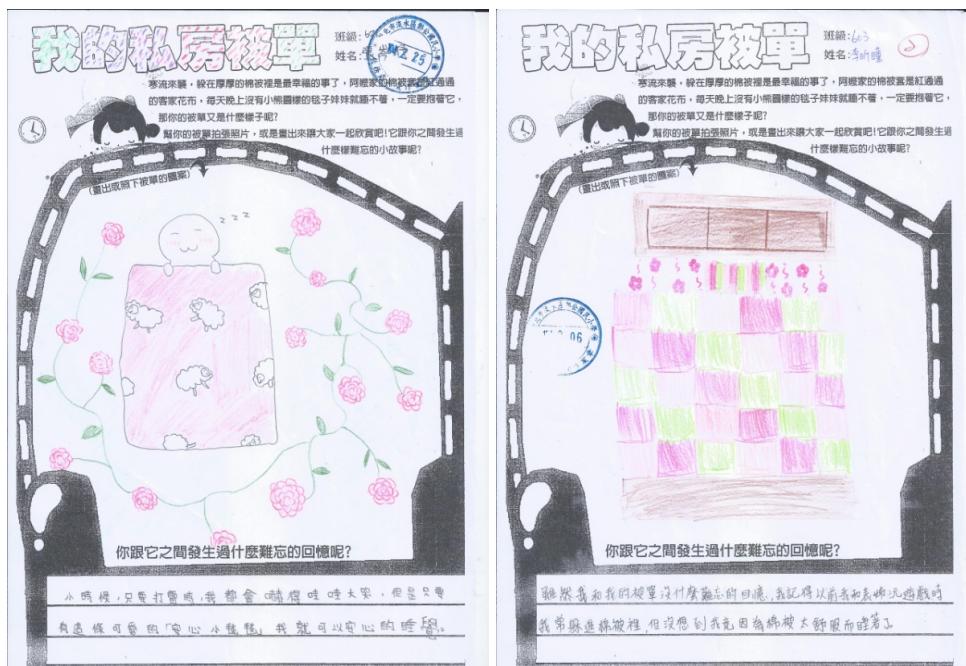 我的私房被單
班級:
姓名:
寒流來襲，躲在厚厚的棉被裡是最幸福的事了，阿嬤家的棉被套是紅通通
的客家花布，每天晚上沒有小熊圖樣的毯子妹妹就睡不著，一定要抱著它，
那你的被單又是什麼樣子呢?
幫你的被單拍張照片，或是畫出來讓大家一起欣賞吧!它跟你之間發生過
什麼樣難忘的小故事呢?
(畫出或照下被單的圖案)
z z z
你跟它之間發生過什麼難忘的回憶呢?
小時候,只要打雷時,我都會嚇得哇哇大哭,但是只要
有這條可愛的「安心小羊毯」我就可以安心的睡覺。
我的私房被單
班級:603
姓名:李昕瞳
寒流來襲，躲在厚厚的棉被裡是最幸福的事了，阿嬤家的棉被套是紅通通
的客家花布，每天晚上沒有小熊圖樣的毯子妹妹就睡不著，一定要抱著它，
那你的被單又是什麼樣子呢?
幫你的被單拍張照片，或是畫出來讓大家一起欣賞吧!它跟你之間發生過
什麼樣難忘的小故事呢?
(畫出或照下被單的圖案)
你跟它之間發生過什麼難忘的回憶呢?
雖然我和我的被單沒什麼難忘的回憶,我記得以前我和表姊玩遊戲時
我常躲進棉被裡,但沒想到我竟因為棉被太舒服而睡著了